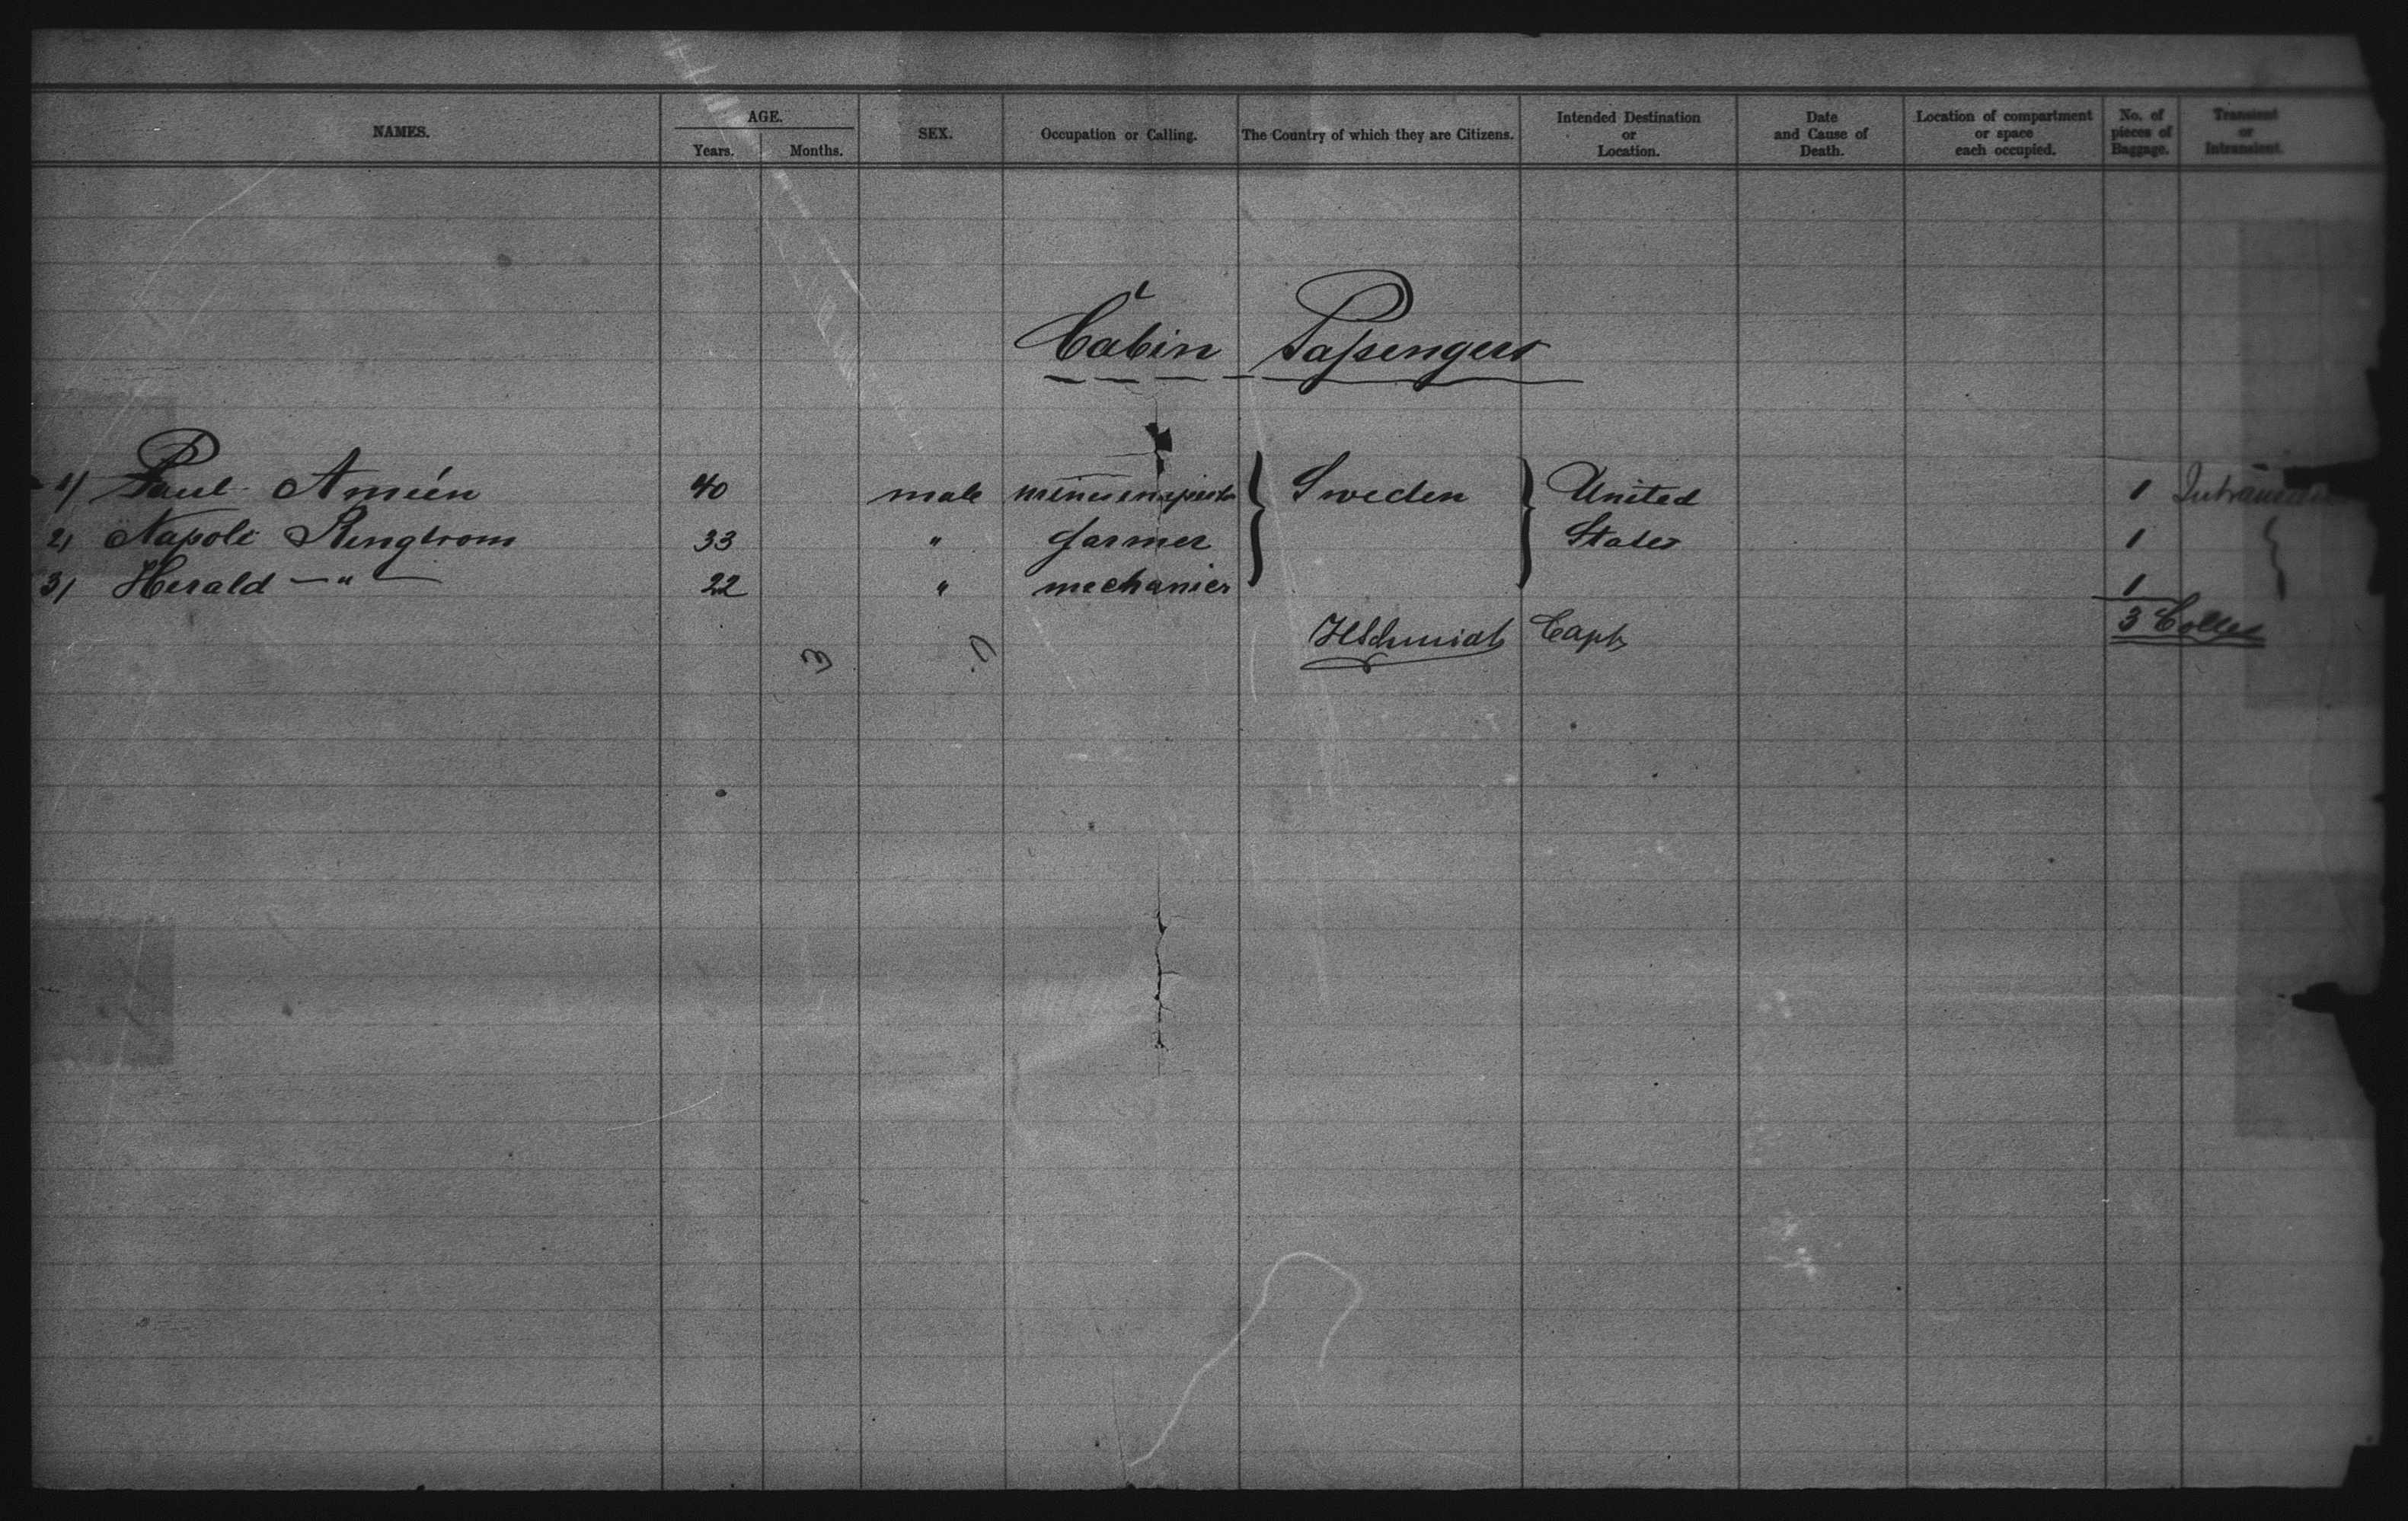 NAMES. AGE. Years. Months. SEX. Occupation or Calling. The Country of which they are Citizens. Intended Destination or Location. Date and Cause of Death. Location of compartment or space each occupied. No. of pieces of Baggage. Transient or Intransient.
Cabin Passengers
1) Paul Améen 40 male Sweden United 1
2) Napoli Ringstrom 33 " farmer States 1
3) Herald — " — 22 " mechanics 1
HSchmidt Capt 3 Colles
3